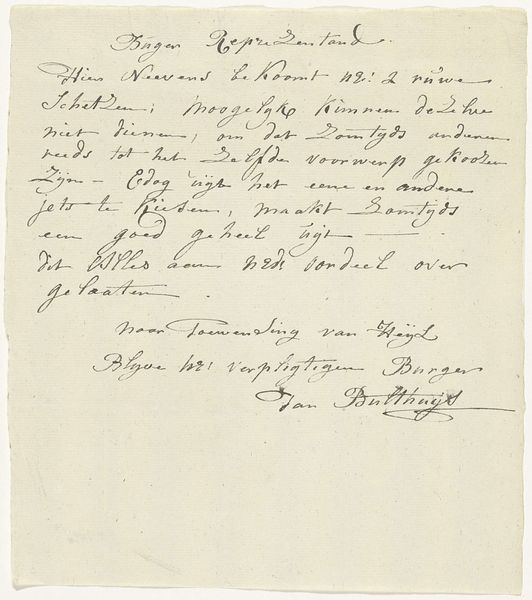 Burger Reprezentand.
Hier Neevens bekoomt UE: 2 ruwe
Schetzen; moogelyk kunnen dezelve
niet dienen, om dat zomtyds anderen
reeds tot het zelfde voorwerp gekoozen
zyn – Edog uijt het eene en andere
iets te kiesen, maakt zomtyds
een goed geheel uijt —
dit Alles aan UEds oordeel over
gelaaten.
naar Toewensing van Heijl
Blyve UE: verpligtigen Burger
Jan Bulthuijs